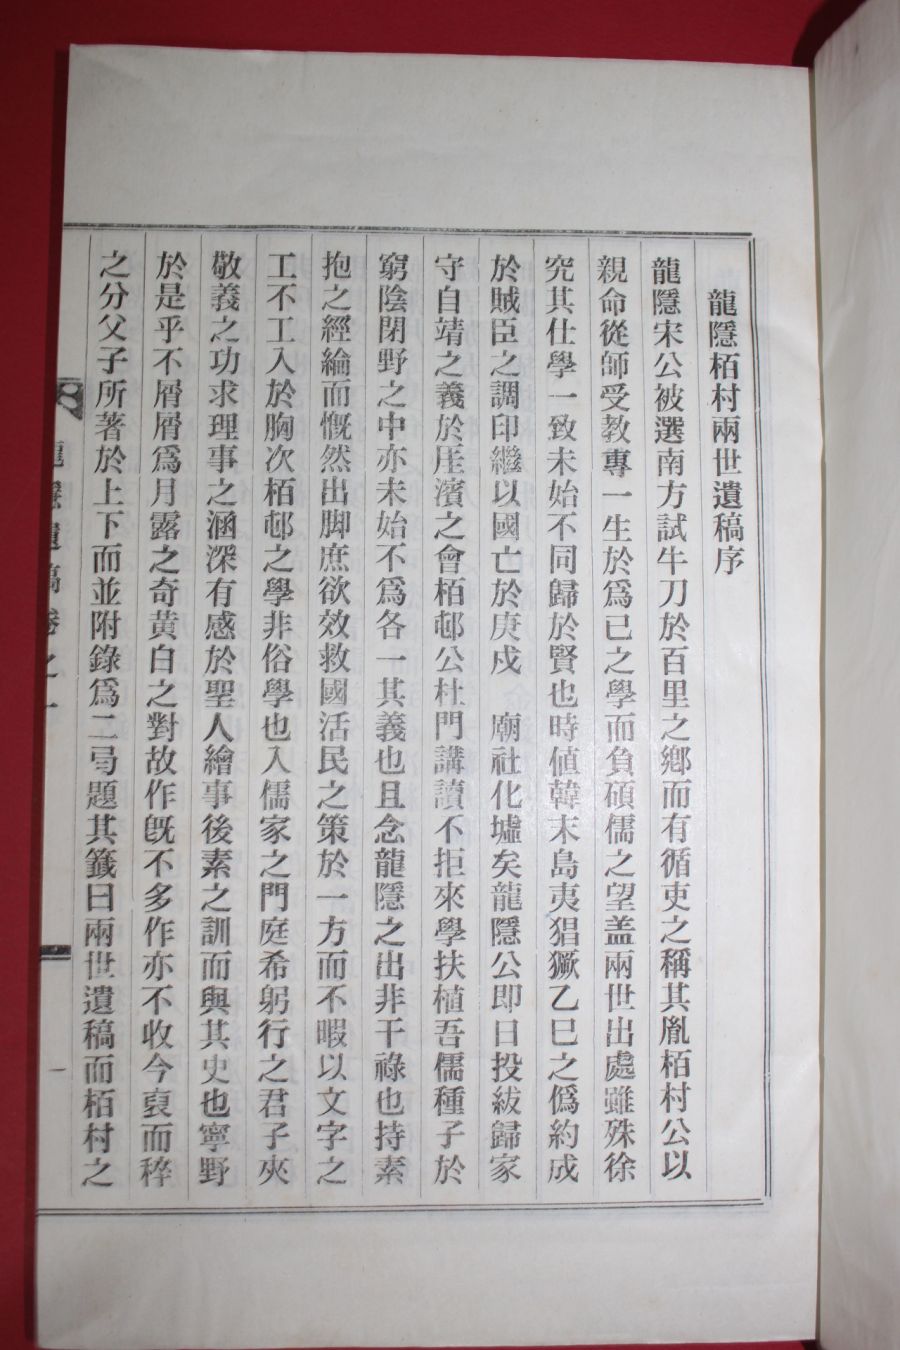 龍隱栢村兩世遺稿序
龍隱宋公被選南方試牛刀於百里之鄕而有循吏之稱其胤栢村公以
親命從師受教專一生於爲己之學而負碩儒之望盖兩世出處雖殊徐
究其仕學一致未始不同歸於賢也時値韓末島夷猖獗乙巳之僞約成
於賊臣之調印繼以國亡於庚戍　廟社化墟矣龍隱公即日投紱歸家
守自靖之義於厓濱之會栢邨公杜門講讀不拒來學扶植吾儒種子於
窮陰閉野之中亦未始不爲各一其義也且念龍隱之出非干祿也持素
抱之經綸而慨然出脚庶欲效救國活民之策於一方而不暇以文字之
工不工入於胸次栢邨之學非俗學也入儒家之門庭希躬行之君子夾
敬義之功求理事之涵深有感於聖人繪事後素之訓而與其史也寧野
於是乎不屑屑爲月露之奇黄白之對故作旣不多作亦不收今裒而稡
之分父子所著於上下而並附錄爲二弓題其籤曰兩世遺稿而栢村之
龍隱遺稿卷之一
一